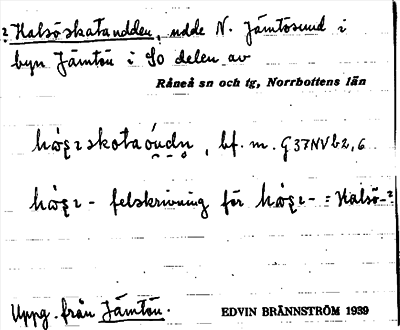 ? Halsöskatauddden, udde N. Jämtösund i
byn Jämtön i SO delen av
Råneå sn och tg, Norrbottens län
bf. m. G37NVb2,6
- felskrivning för - = Halsö-?
Uppg. från Jämtön.
EDVIN BRÄNNSTRÖM 1939